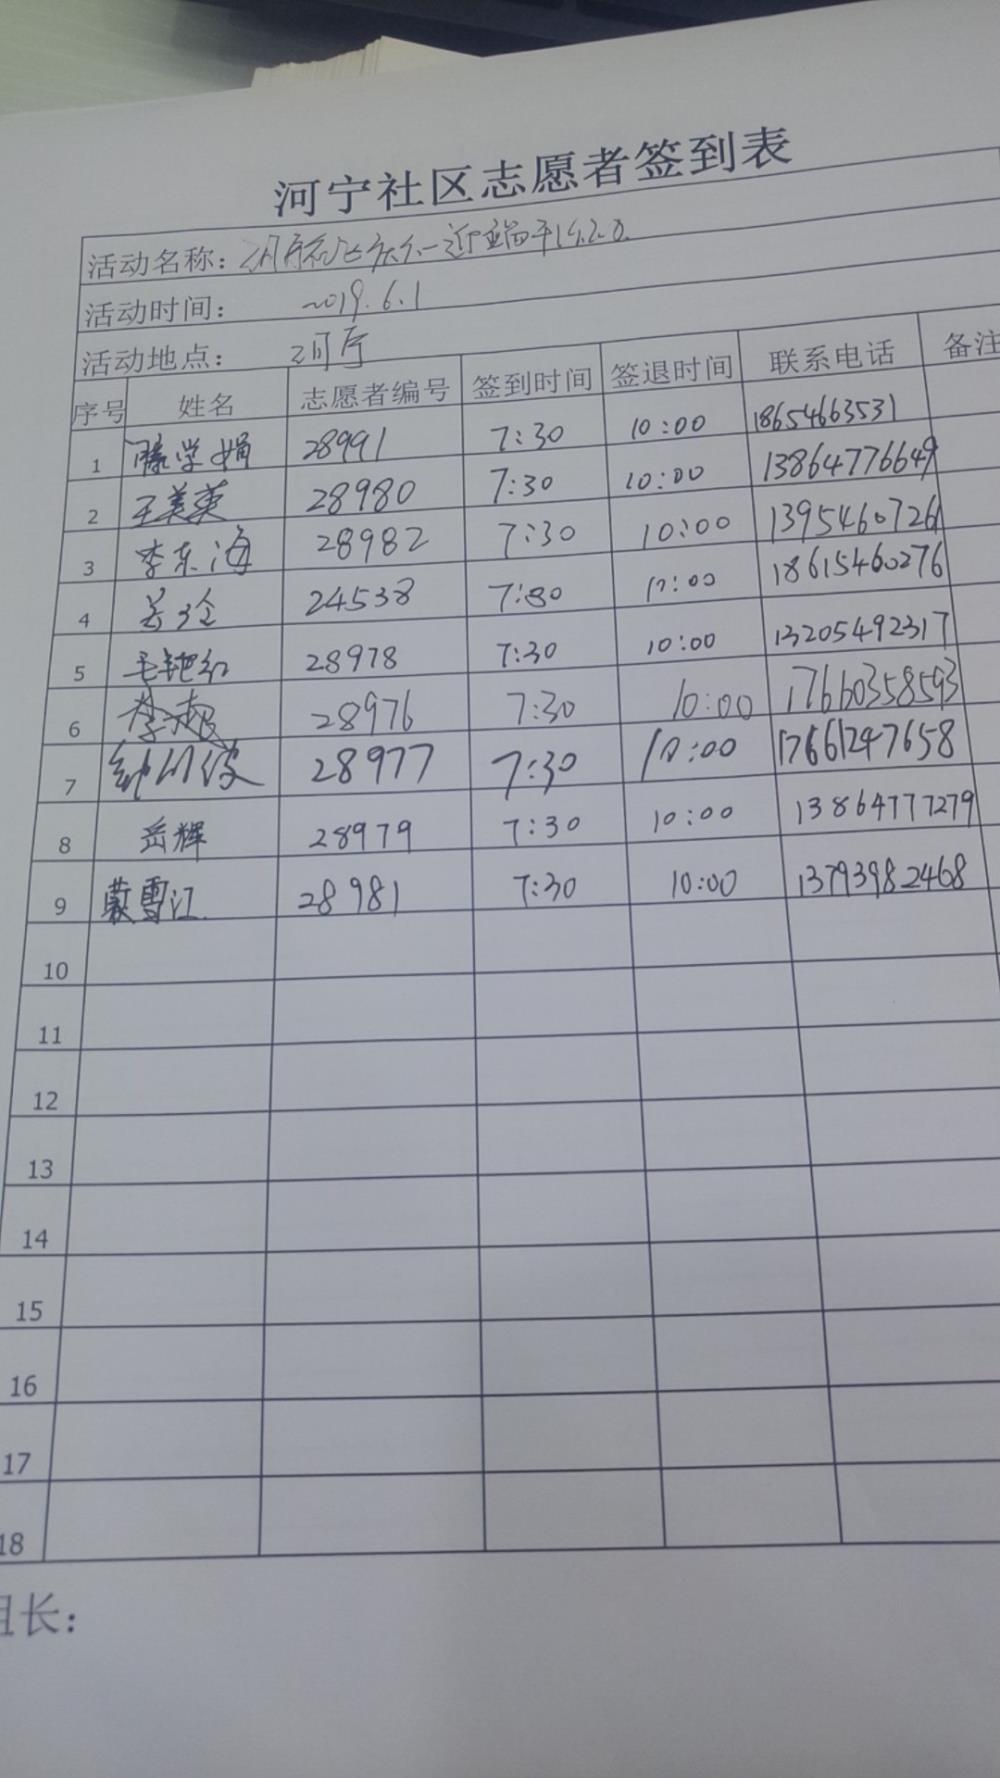 河宁社区志愿者签到表
活动名称:
活动时间: 2019.6.1
活动地点: 河居
序号 姓名 志愿者编号 签到时间 签退时间 联系电话 备注
1 滕学娟 28991 7:30 10:00 18654663531
2 王美英 28980 7:30 10:00 13864776649
3 李东海 28982 7:30 10:00 13954607261
4 24538 7:30 10:00 18615460276
5 毛艳红 28978 7:30 10:00 13205492317
6 28976 7:30 10:00 17660358593
7 28977 7:30 10:00 17661247658
8 岳辉 28979 7:30 10:00 13864777279
9 蒙雪江 28981 7:30 10:00 13793982468
10
11
12
13
14
15
16
17
18
组长: